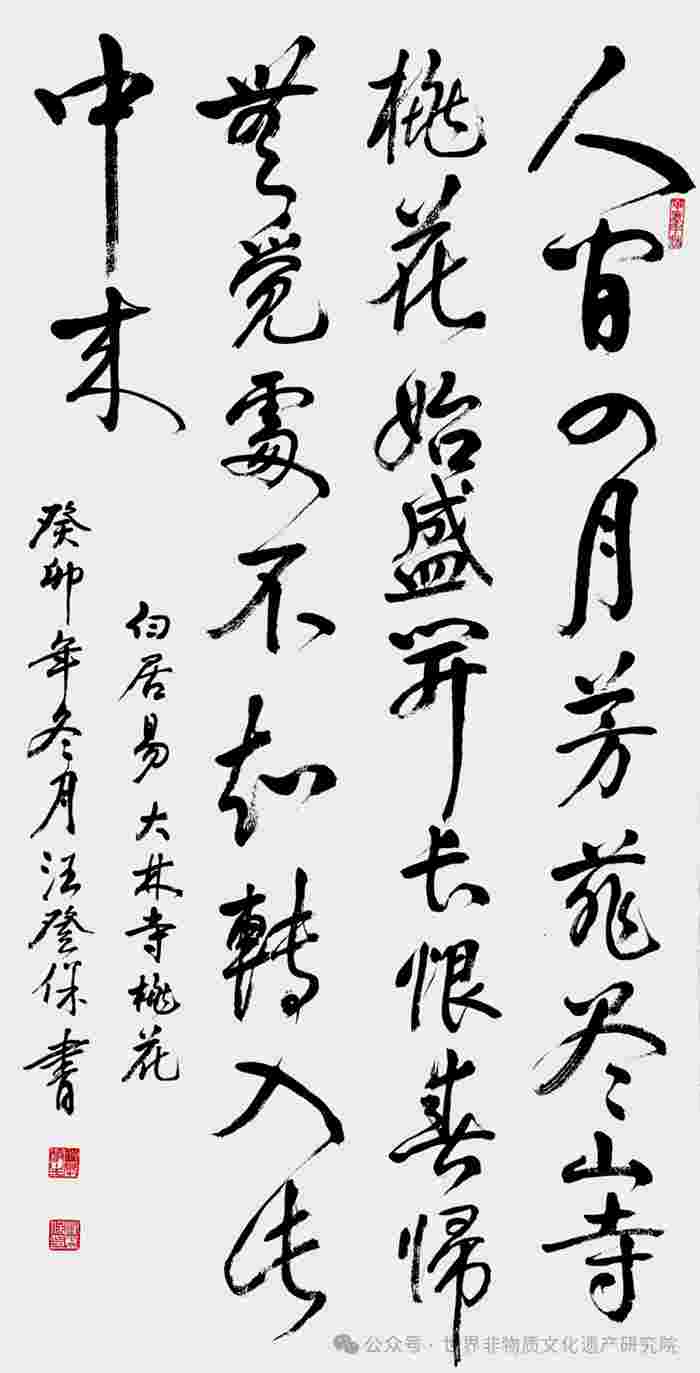 人間四月芳菲尽山寺
桃花始盛開长恨春帰
無覓處不知轉入此
中来
白居易大林寺桃花
癸卯年冬月汪登保書
公众号·世界非物质文化遗产研究院